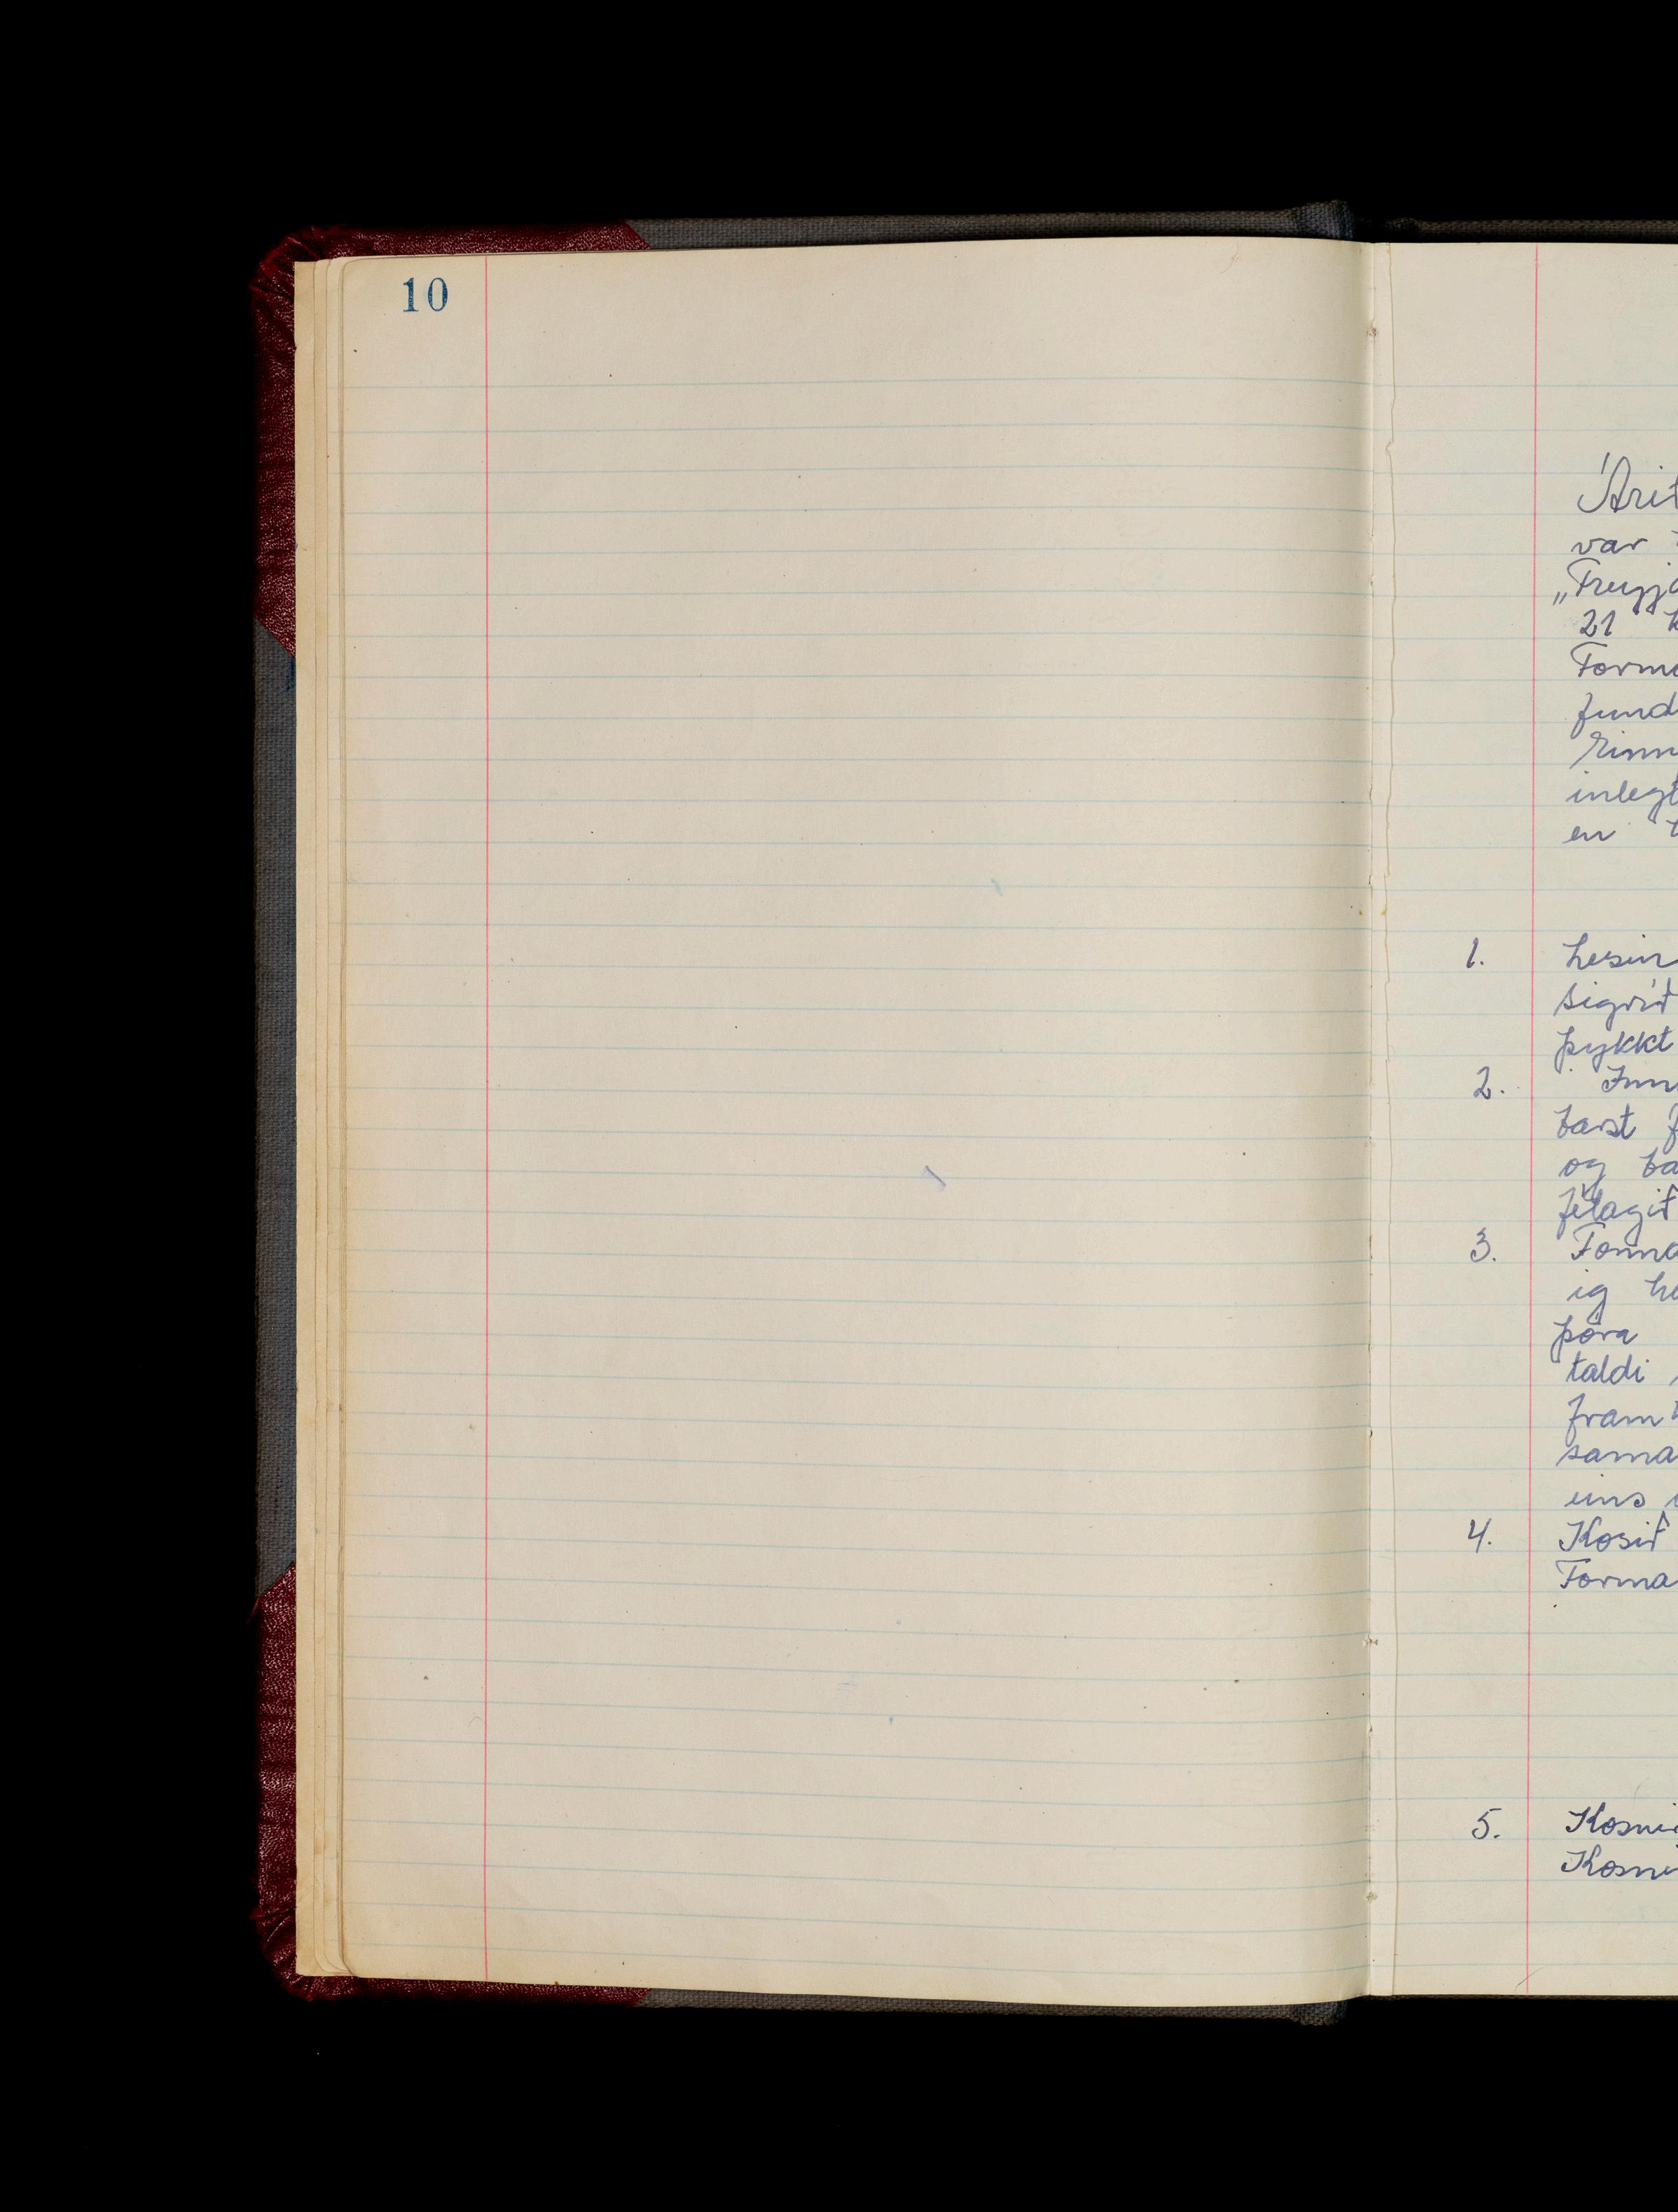 10
Árið
var
„Freyja
21
Forma
fund
Einn
inlegt
en
1. Lesin
Sigríð
þykkt
2. Inn
barst f
og ba
félagið
3. Forma
ig he
þóra
taldi
fram
sama
eins
4. Kosið
Forma
5. Kosni
Kosni